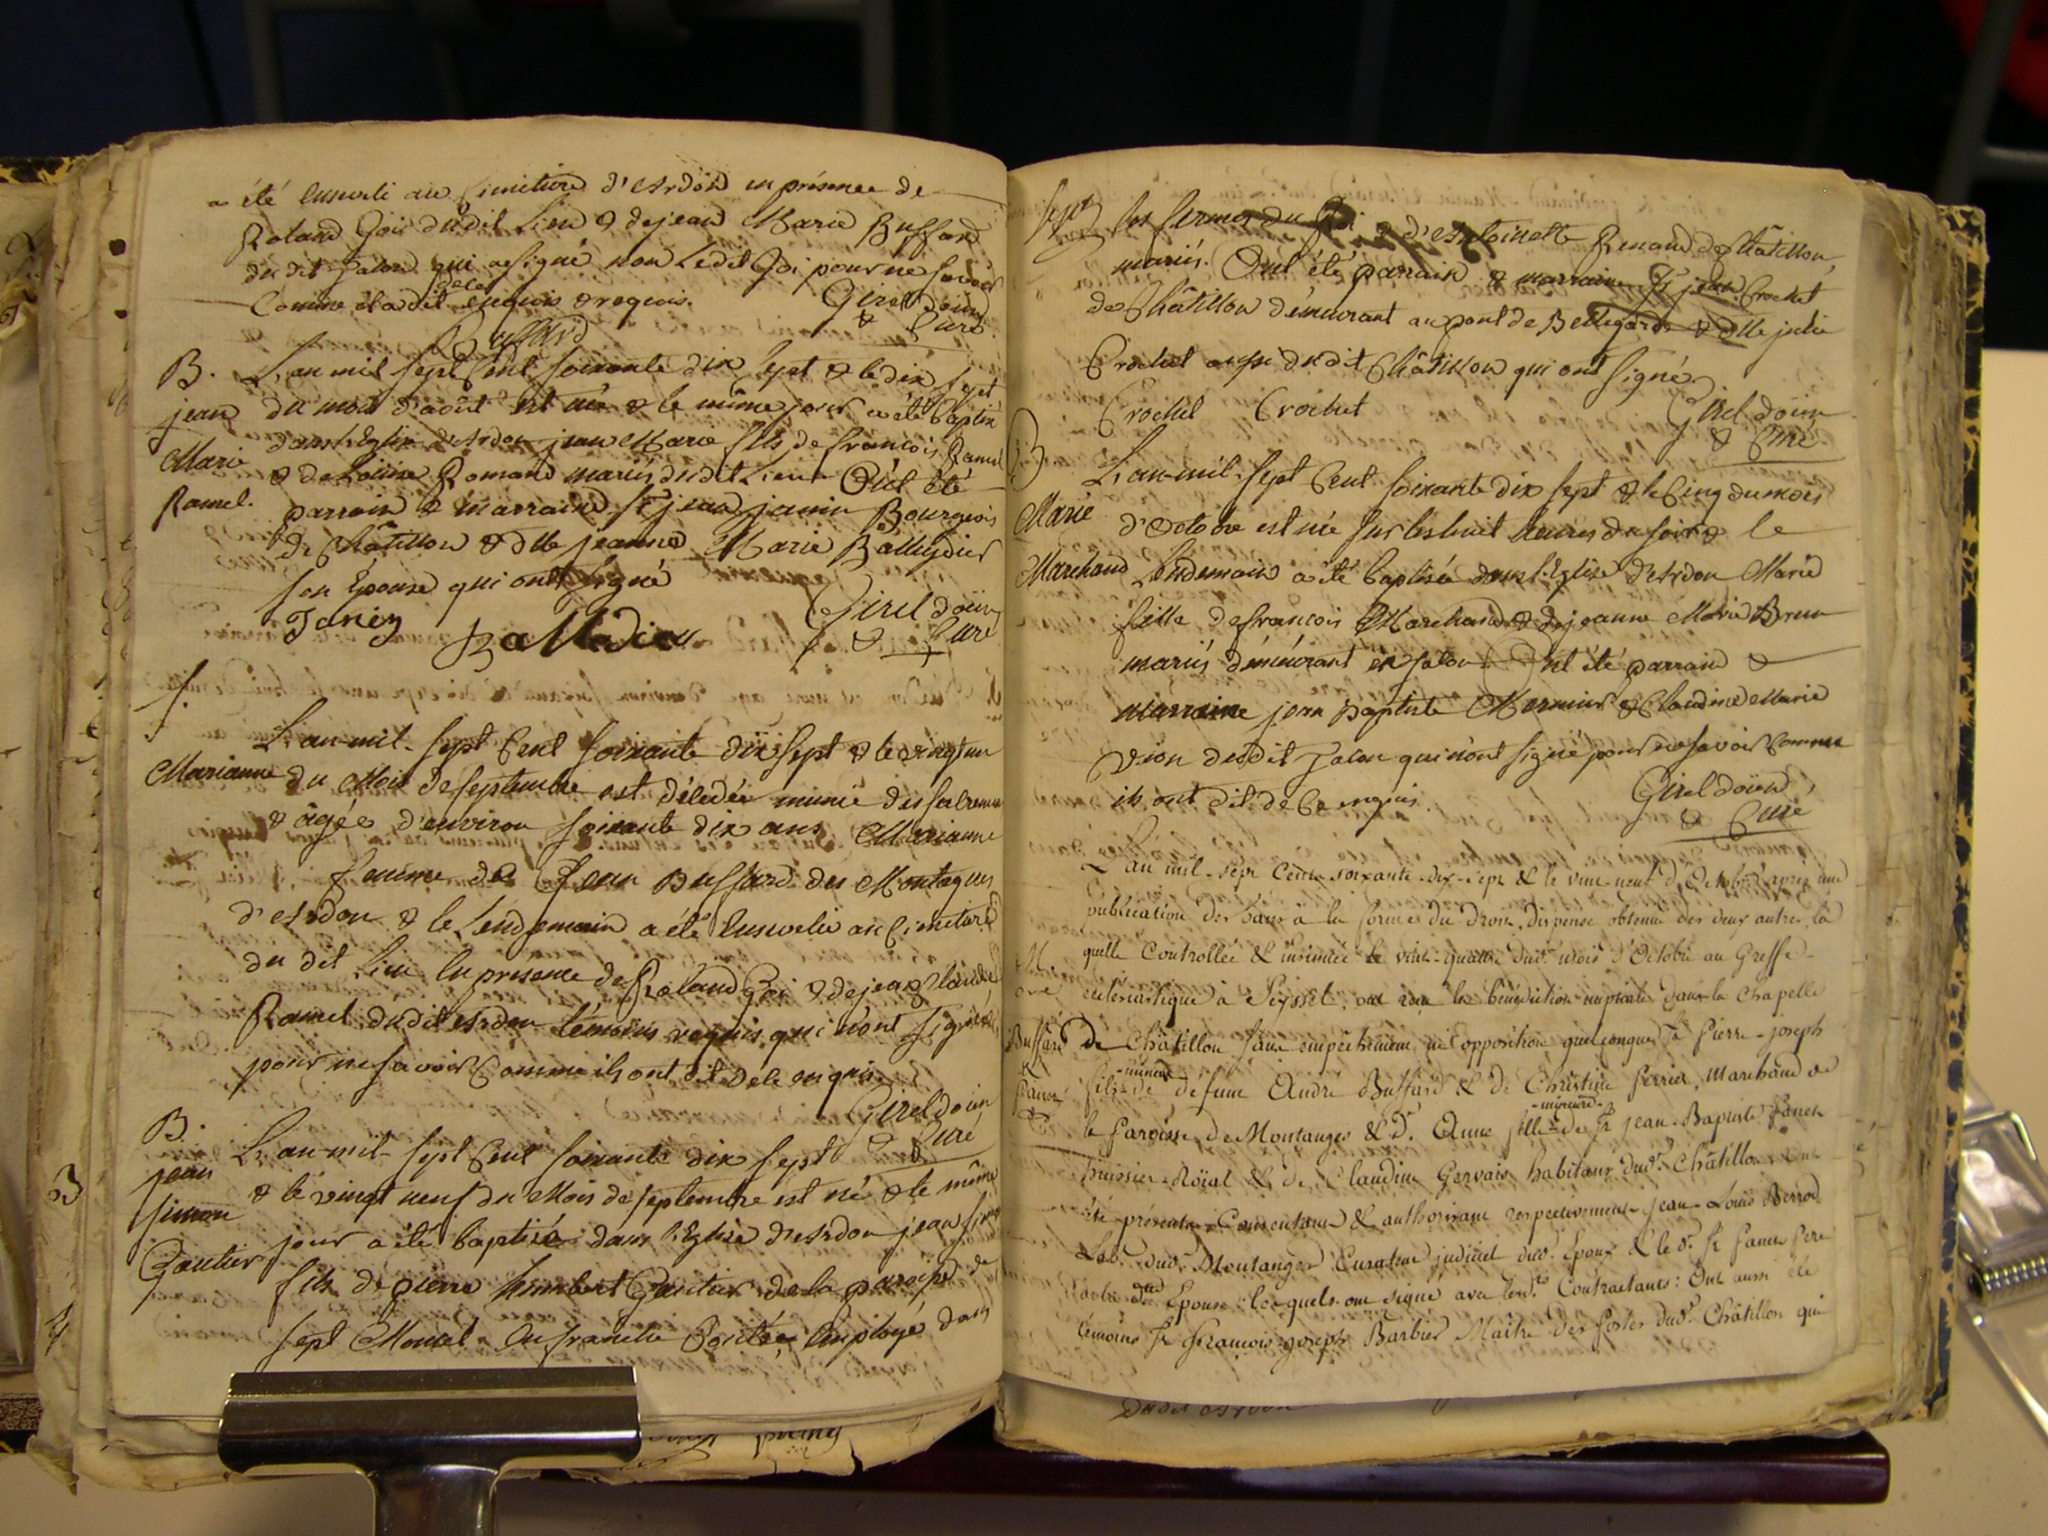 a été enseveli au Cimetiere d'Ardon en présence de
Roland Goi dudit Lieu & de jean Marie Buffard
du dit Jalon qui a signé non Ledit Goi pour ne savoir
Comme il a dit de ce enquis & requis. Girel doüin
Buffard & Curé
B. L'an mil sept Cent soixante dix sept & le dix sept
jean du mois d'août est né & le même jour a été baptisé
Marie dans l'Eglise d'Ardon jean Marie fils de francois Ramel
Ramel. & de Romand mariés dudit Lieu Ont été
parrain & marraine Sr jean janin Bourgeois
de Châtillon & dlle jeanne Marie Balleydier
son Epouse qui ont signé
Janin Girel doüin
& Curé
L'an mil sept Cent soixante dix sept & le vingt un
Marianne du Mois de septembre est décedée munie des sacremens
& âgée d'environ soixante dix ans Marianne
femme de Jean Buffard des Montagnes
d'Ardon & le Lendemain a été ensevelie au Cimetiere
du dit Lieu En présence de Roland Goi & de jean Claude
Ramel dudit Ardon témoins requis qui n'ont signé
pour ne savoir Comme ils ont dit de ce enquis
Girel doüin
B. L'an mil sept Cent soixante dix sept & Curé
jean & le vingt neuf du Mois de septembre est né & le même
simon jour a été baptisé dans l'Eglise d'Ardon jean simon
Gautier fils de pierre humbert Gautier de la paroisse de
sept Moncel En franche Comtée, Employé dans
Sept les fermes du Roi & d'Antoinette Renaud de Châtillon
mariés. Ont été parrain & marraine Sr jean Crochet
de Châtillon démeurant au pont de Bellegarde & dlle julie
Crochet aussi du dit Châtillon qui ont signé
Crochet Crochet Girel doüin
& Curé
B L'an mil sept Cent soixante dix sept & le Cinq du mois
Marie d'Octobre est née sur les huit heures du soir & le
Marchand Lendemain a été baptisée dans l'Eglise d'Ardon Marie
fille de francois Marchand & de jeanne Marie Brun
mariés démeurant en Jalon Ont été parrain &
marraine jean Baptiste Mermier & Claudine Marie
dudit Jalon qui n'ont signé pour ne savoir comme
ils ont dit de Ce enquis. Girel doüin
& Curé
L'an mil sept Cent soixante-dix-sept & le vint-neuf d'Octobre après une
publication des bans à la forme du droit, dispense obtenue des deux autres, la
M. quelle Controllée & insinuée le vint-quatre dud. mois d'Octobre au Greffe
ecclésiastique à Seyssel, ont reçu la bénédiction nuptiale dans la Chapelle
Buffard de Châtillon sans empêchement ni opposition quelconque Sr Pierre-joseph
& fils mineur de defunt André Buffard & de Christine Perrier, Marchand de
la Paroisse de Montanges & D. Anne fille mineure de Sr jean-Baptiste
huissier-Roïal & de Claudine Gervais habitans dud. Châtillon. Ont
été présents, Consentans & authorisans respectivement jean-Louis
Lab. dud. Montanges Curateur judiciel dud. Epoux & le d. Sr Pere
de la d. Epouse: lesquels ont signé avec les d. Contractants: Ont aussi été
témoins Sr François-joseph Barbier Maitre des Postes dud. Châtillon qui